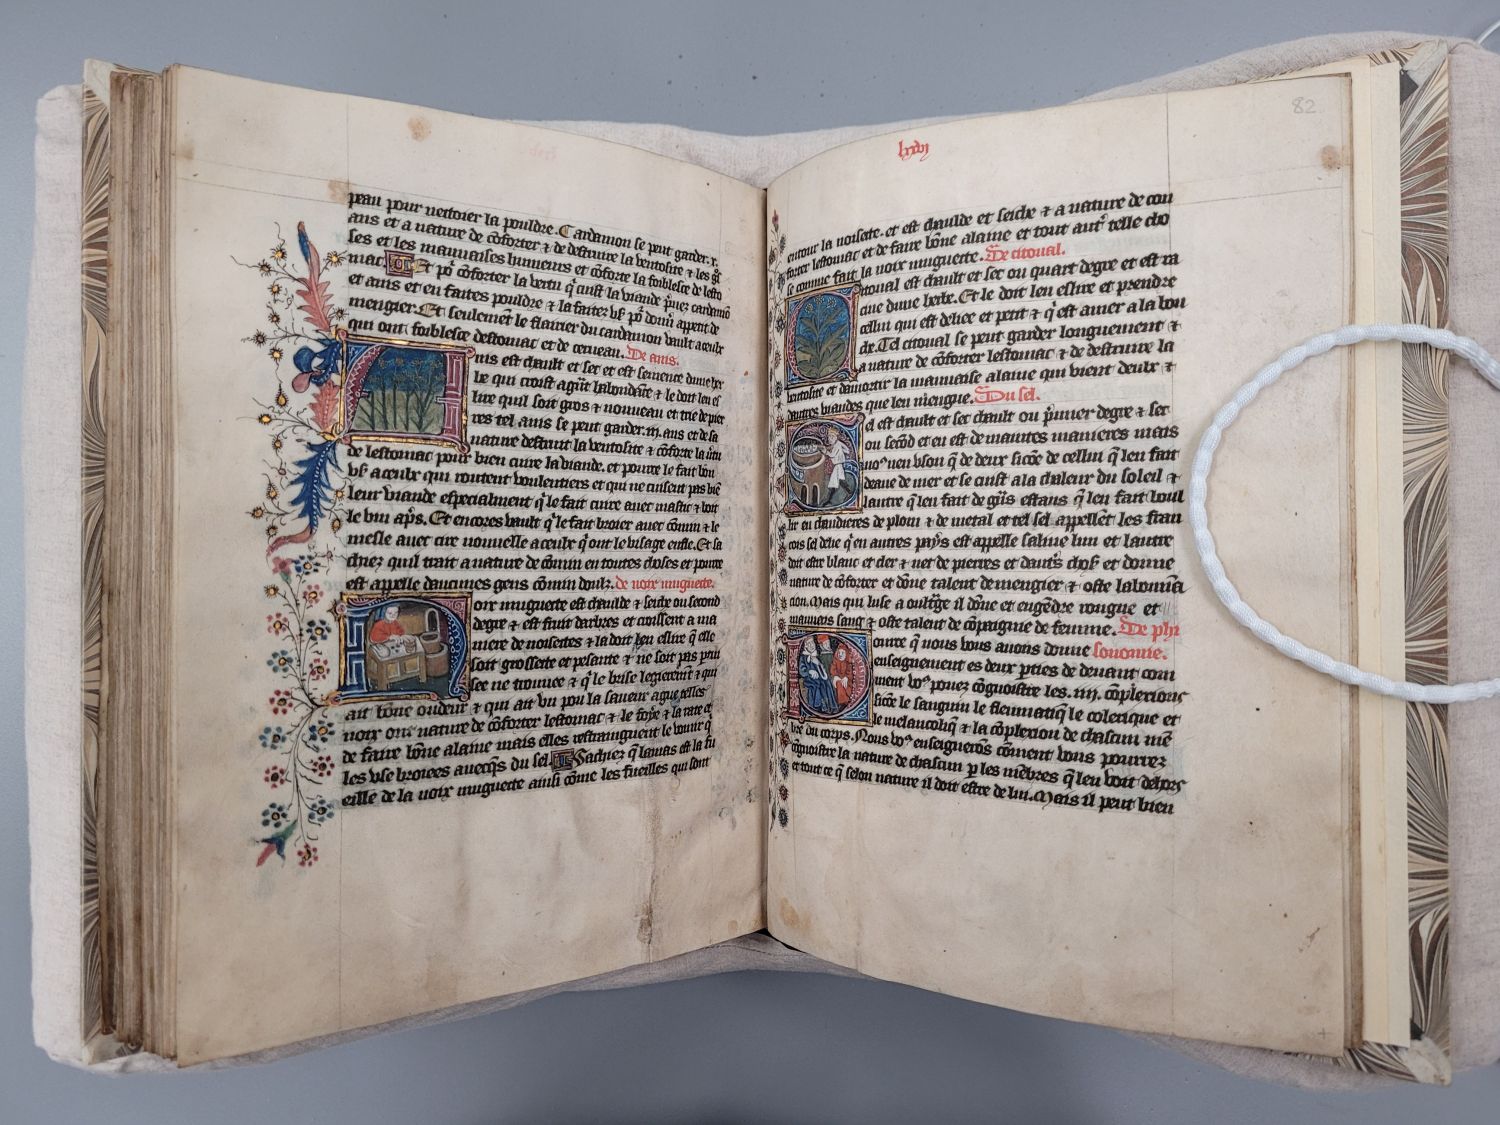 peau pour nectoier la pouldre. Cardamon se peut garder .x.
ans et a nature de cõforter ⁊ de destruire la ventosite ⁊ les gͬ
ses et les mauuaises humeurs et cõforte la foiblesce de lesto
mac. Et pͬ cõforter la vertu q̃ cuist la viande p̃nez cardamõ
et anis et en faites pouldre ⁊ la faitez vs̃ pͬ donñ appetit de
mengier. Et seulemẽt le flairier du cardamon vault a ceulx
qui ont foiblesce destomac et de cerueau. De anis.
nis est chault et sec et est semence dune her
be qui croist agñt habondãce ⁊ le doit len es
lire quil soit gros ⁊ nouueau et trie de pier
res tel anis se peut garder .iij. ans et de sa
nature destruit la ventosite ⁊ cõforte la v̾tu
de lestomac pour bien cuire la viande. et pource le fait bon
vs̃ a ceulx qui routent voulentiers et qui ne cuisent pas biẽ
leur viande especialment q̃ le fait cuire auec mastic ⁊ boit
le vin ap̃s. Et encores vault q̃ le fait broier auec cõmin ⁊ le
mesle auec cire nouuelle a ceulx q̃ ont le visage enfle. Et sa
chiez quil trait a nature de cõmin en toutes choses et pource
est appelle daucunes gens cõmin doulz. de noix muguecte.
oix muguecte est chaulde ⁊ seiche ou second
degre ⁊ est fruit darbres et croissent a ma
niere de noisectes ⁊ la doit len eslire q̃ elle
soit grossecte et pesante ⁊ ne soit pas
see ne trouuee ⁊ q̃ le brise legierem̃t ⁊ qui
ait bõne oudeur ⁊ qui ait vn pou la saueur ague telles
noix ont nature de cõforter lestomac ⁊ le foye ⁊ la rate et
de faire bõne alaine mais elles restraingnent le vomir q̃
les vse broiees auecq̃s du sel. Sachiez q̃ lamas est la fu
eille de la noix muguecte ainsi cõme les fueilles qui sont
82
lxxvj
entour la noisecte. et est chaulde et seiche ⁊ a nature de con
forter lestomac et de faire bõne alaine et tout autͬ telle cho
se comme fait la noix muguecte. De citoual.
itoual est chault et sec ou quart degre et est ra
cine dune herbe. Et le doit len eslire et prendre
cellui qui est delice et petit ⁊ q̃ est amer a la bou
che. Tel citoual se peut garder longuement ⁊
a nature de cõforter lestomac ⁊ de destruire la
ventosite et damortir la mauuaise alaine qui vient deulx ⁊
dautres viandes que len mẽngue. Du sel.
el est chault et sec chault ou p̃mier degre ⁊ sec
ou secõd et en est de maintes manieres mais
no⁹ nen vson q̃ de deux sicõe de cellui q̃ len fait
deaue de mer et se cuist a la chaleur du soleil ⁊
lautre q̃ len fait de gñs estans q̃ len fait boul
lir en chaudieres de plom ⁊ de metal et tel sel appellẽt les fran
cois sel delie q̃ en autres pays est appelle salme bin et lautre
doit estre blanc et cler ⁊ net de pierres et dautͬs chos̃ et donne
nature de cõforter et dõne talent de mengier ⁊ oste labomĩa
cion. Mais qui luse a oultͬge il dõne et engẽdre rongne et
mauuais sang ⁊ oste talent de cõpaignie de femme. De phi
ontre q̃ nous vous auons donne sonomie.
enseignement es deux p̃ties de deuant com
ment vo⁹ pouez cõgnoistre les .iiij. cõplexions
sicõe le sanguin le fleumatiq̃ le colerique et
le melancoliq̃ ⁊ la cõplexion de chascun mẽ
bre du corps. Nous vo⁹ enseignerõs cõment vous pourrez
cõgnoistre la nature de chascun p̃ les mẽbres q̃ len voit dehors
et tout ce q̃ selon nature il doit estre de lui. Mais il peut bien